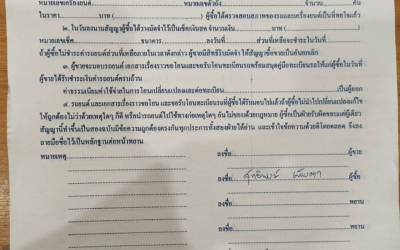 หมายเลขเครื่องยนต์ หมายเลขตัวถัง จำนวน คัน
ในราคา บาท ( ) ผู้ซื้อได้ตรวจสอบสภาพของรถและเครื่องยนต์เป็นที่พอใจแล้ว
๒. ในวันลงนามสัญญาผู้ซื้อได้วางมัดจำไว้เป็นเช็คเงินสด จำนวนเงิน บาท ( )
หมายเลขเช็ค ธนาคาร ลงวันที่ ส่วนที่เหลือจะชำระในวันที่
ถ้าผู้ซื้อไม่ชำระค่ารถยนต์ส่วนที่เหลือภายในเวลาดังกล่าว ผู้ขายมีสิทธิริบมัดจำ ให้สัญญาซื้อขายเป็นอันยกเลิก
๓. ผู้ขายจะมอบรถยนต์ เอกสารเรื่องราวขอโอน และขอรับโอนทะเบียนรถพร้อมสมุดคู่มือทะเบียนรถให้แก่ผู้ซื้อในวันที่
ผู้ขายได้รับชำระเงินค่ารถยนต์ครบถ้วน
ค่าธรรมเนียมค่าใช้จ่ายในการโอนเปลี่ยนแปลงและต่อทะเบียน เป็นผู้ออก
๔. รถยนต์ และเอกสารเรื่องราวขอโอน และขอรับโอนทะเบียนที่ผู้ซื้อได้รับมอบไปแล้วถ้าผู้ซื้อไม่นำไปเปลี่ยนแปลงแก้ไข
ให้ถูกต้องไม่ว่าด้วยเหตุใดๆ ก็ดี หรือนำรถยนต์ไปใช้ทางก่อเหตุใดๆ อันไม่ชอบด้วยกฎหมาย ผู้ซื้อเป็นฝ่ายรับผิดชอบแต่ผู้เดียว
สัญญานี้ทำขึ้นเป็นสองฉบับมีข้อความถูกต้องตรงกันทุกประการทั้งสองฝ่ายได้อ่าน และเข้าใจข้อความด้วยดีโดยตลอด จึงลง
ลายมือชื่อไว้เป็นหลักฐานต่อหน้าพยาน
หมายเหตุ ลงชื่อ ผู้ขาย
ลงชื่อ ผู้ซื้อ
ลงชื่อ พยาน
ลงชื่อ พยาน